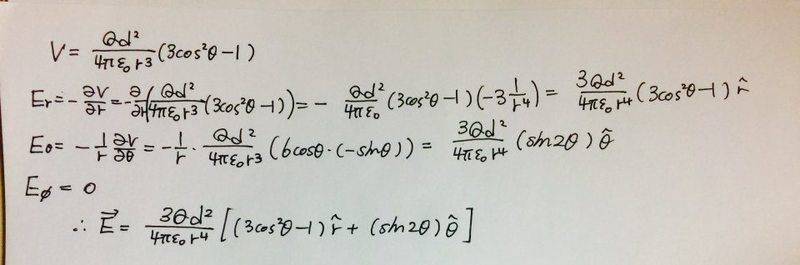 V = \frac{Qd^2}{4\pi\varepsilon_0 r^3}(3\cos^2\theta - 1)
E_r = -\frac{\partial V}{\partial r} = -\frac{\partial}{\partial r}\left(\frac{Qd^2}{4\pi\varepsilon_0 r^3}(3\cos^2\theta - 1)\right) = -\frac{Qd^2}{4\pi\varepsilon_0}(3\cos^2\theta - 1)(-3\frac{1}{r^4}) = \frac{3Qd^2}{4\pi\varepsilon_0 r^4}(3\cos^2\theta - 1)\hat{r}
E_\theta = -\frac{1}{r}\frac{\partial V}{\partial\theta} = -\frac{1}{r}\cdot\frac{Qd^2}{4\pi\varepsilon_0 r^3}(6\cos\theta\cdot(-\sin\theta)) = \frac{3Qd^2}{4\pi\varepsilon_0 r^4}(\sin 2\theta)\hat{\theta}
E_\phi = 0
\therefore \vec{E} = \frac{3Qd^2}{4\pi\varepsilon_0 r^4}[(3\cos^2\theta - 1)\hat{r} + (\sin 2\theta)\hat{\theta}]